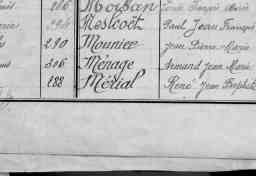 266 Moisan
Mescoët Paul Jean François
290 Mounier Jean Pierre Marie
306 Ménage Armand Jean Marie
288 Mérial René Jean Baptiste